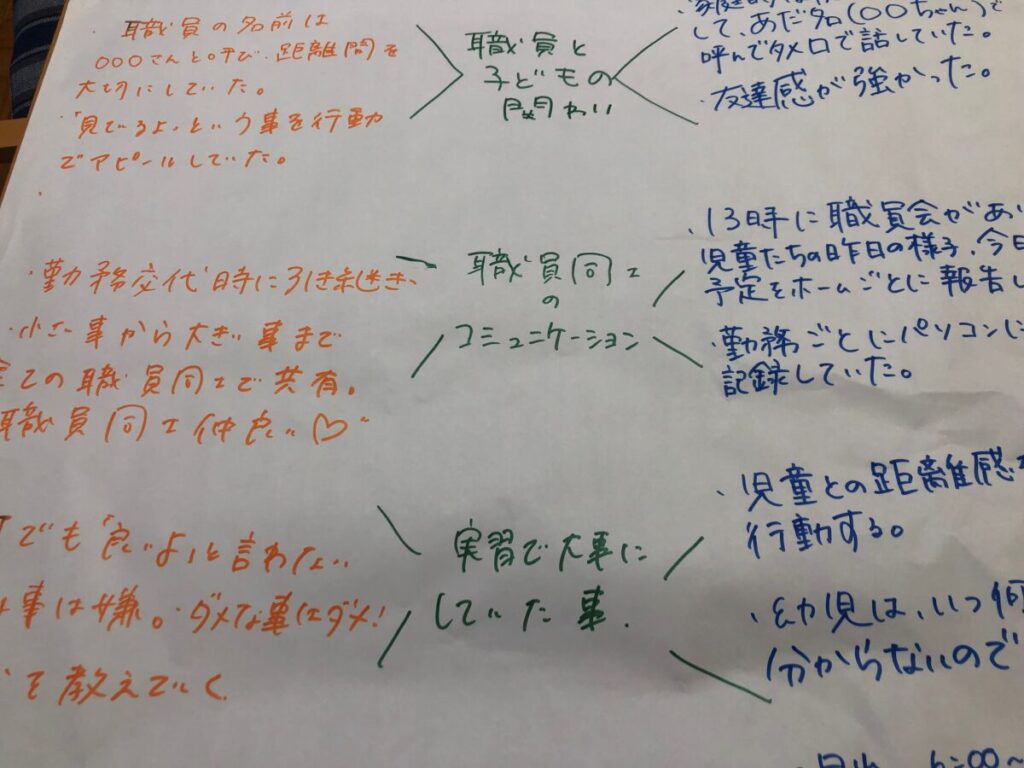 職員の名前は
〇〇〇さんと呼び、距離間を
大切にしていた。
・「見ているよ」という事を行動
でアピールしていた。
職員と
子どもの
関わり
して、あだ名(〇〇ちゃん)で
呼んでタメ口で話していた。
・友達感が強かった。
・勤務交代時に引き継ぎ、
・小さい事から大きい事まで
全ての職員同士で共有。
職員同士仲良い♡
職員同士
の
コミュニケーション
・13時に職員会があ
児童たちの昨日の様子、今日
予定をホームごとに報告し
・勤務ごとにパソコンに
記録していた。
でも「良いよ」と言わない
な事は嫌。ダメな事はダメ!
を教えていく
実習で大事に
していた事.
・児童との距離感
行動する。
・幼児は、いつ何
分からないので